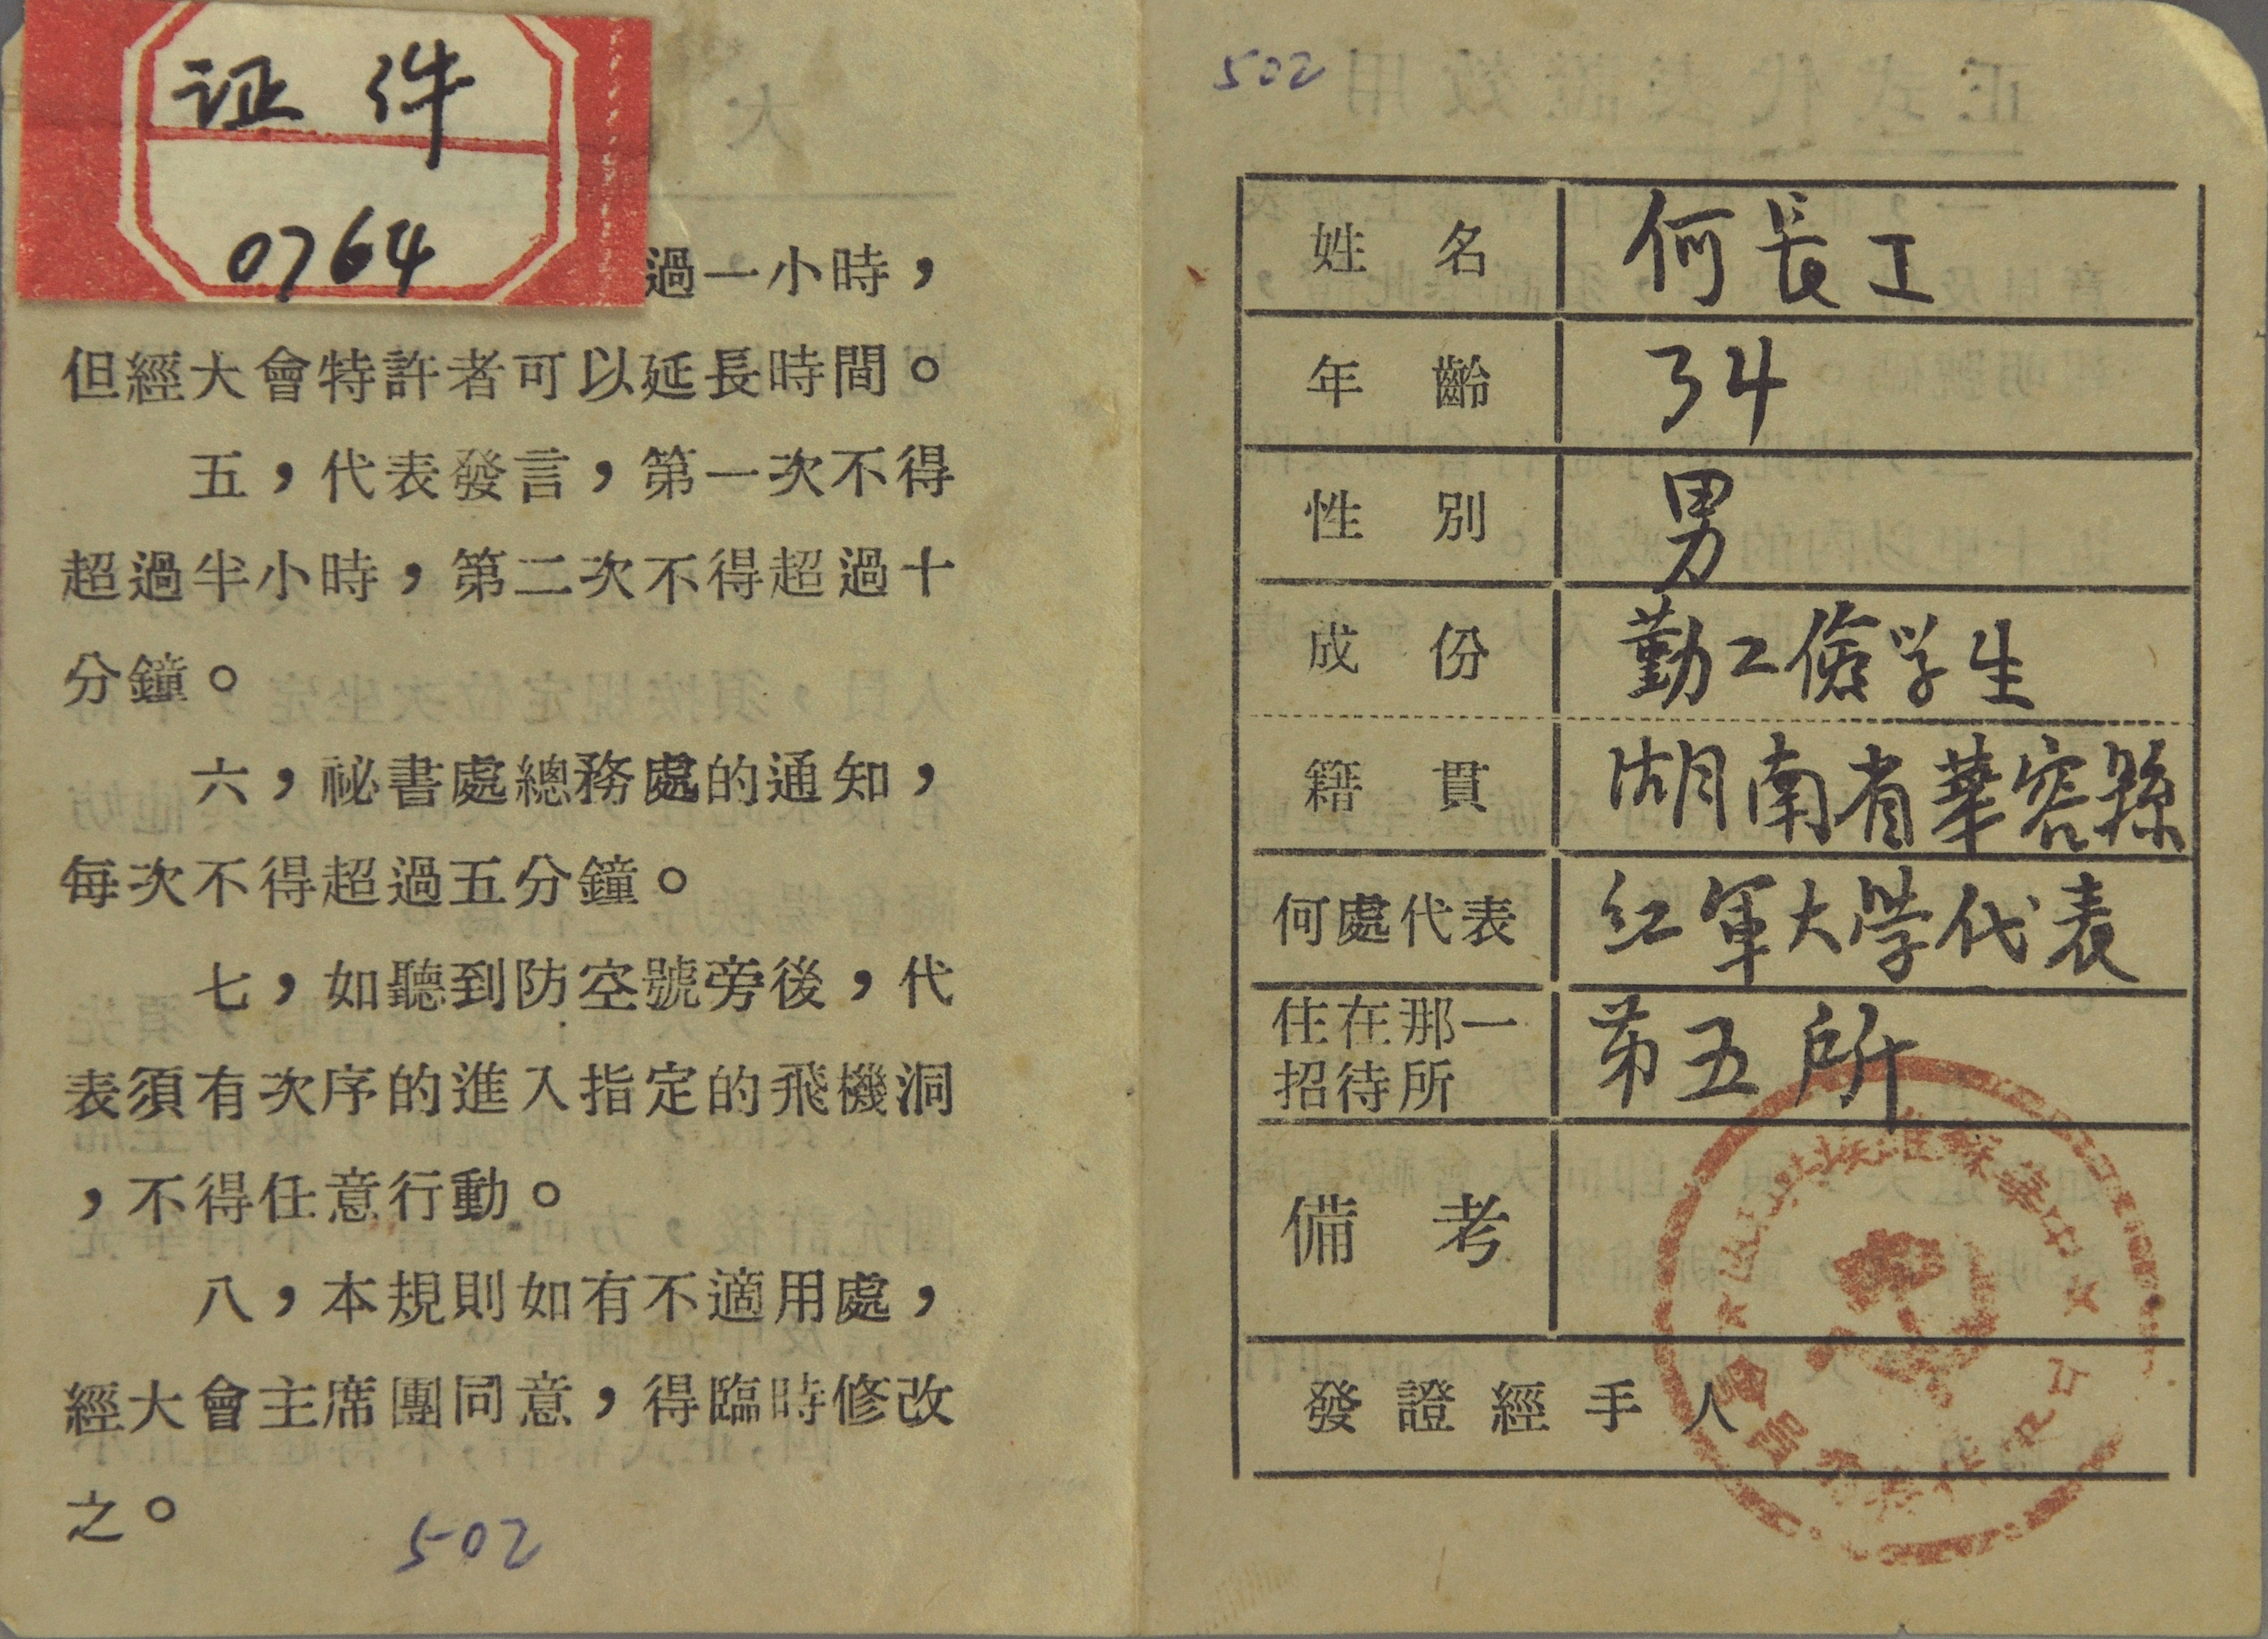 证件
0764
過一小時，
但經大會特許者可以延長時間。
五，代表發言，第一次不得
超過半小時，第二次不得超過十
分鐘。
六，祕書處總務處的通知，
每次不得超過五分鐘。
七，如聽到防空號旁後，代
表須有次序的進入指定的飛機洞
，不得任意行動。
八，本規則如有不適用處，
經大會主席團同意，得臨時修改
之。
502
502
姓名 何長工
年齡 34
性別 男
成份 勤工儉学生
籍貫 湖南省華容縣
何處代表 红軍大學代表
住在那一
招待所 第五所
備考
發證經手人